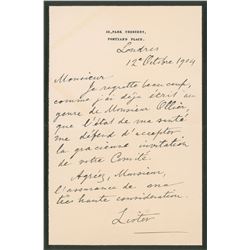 PARK CRESCENT,
PORTLAND PLACE.
Londres
12e Octobre 1904
Monsieur
Je regrette beaucoup,
comme j'ai déjà écrit au
genre de Monsieur Ollier,
que l'état de ma santé
me défend d'accepter
la gracieuse invitation
de votre Comité.
Agréez, Monsieur,
l'assurance de ma
très haute considération.
Lister